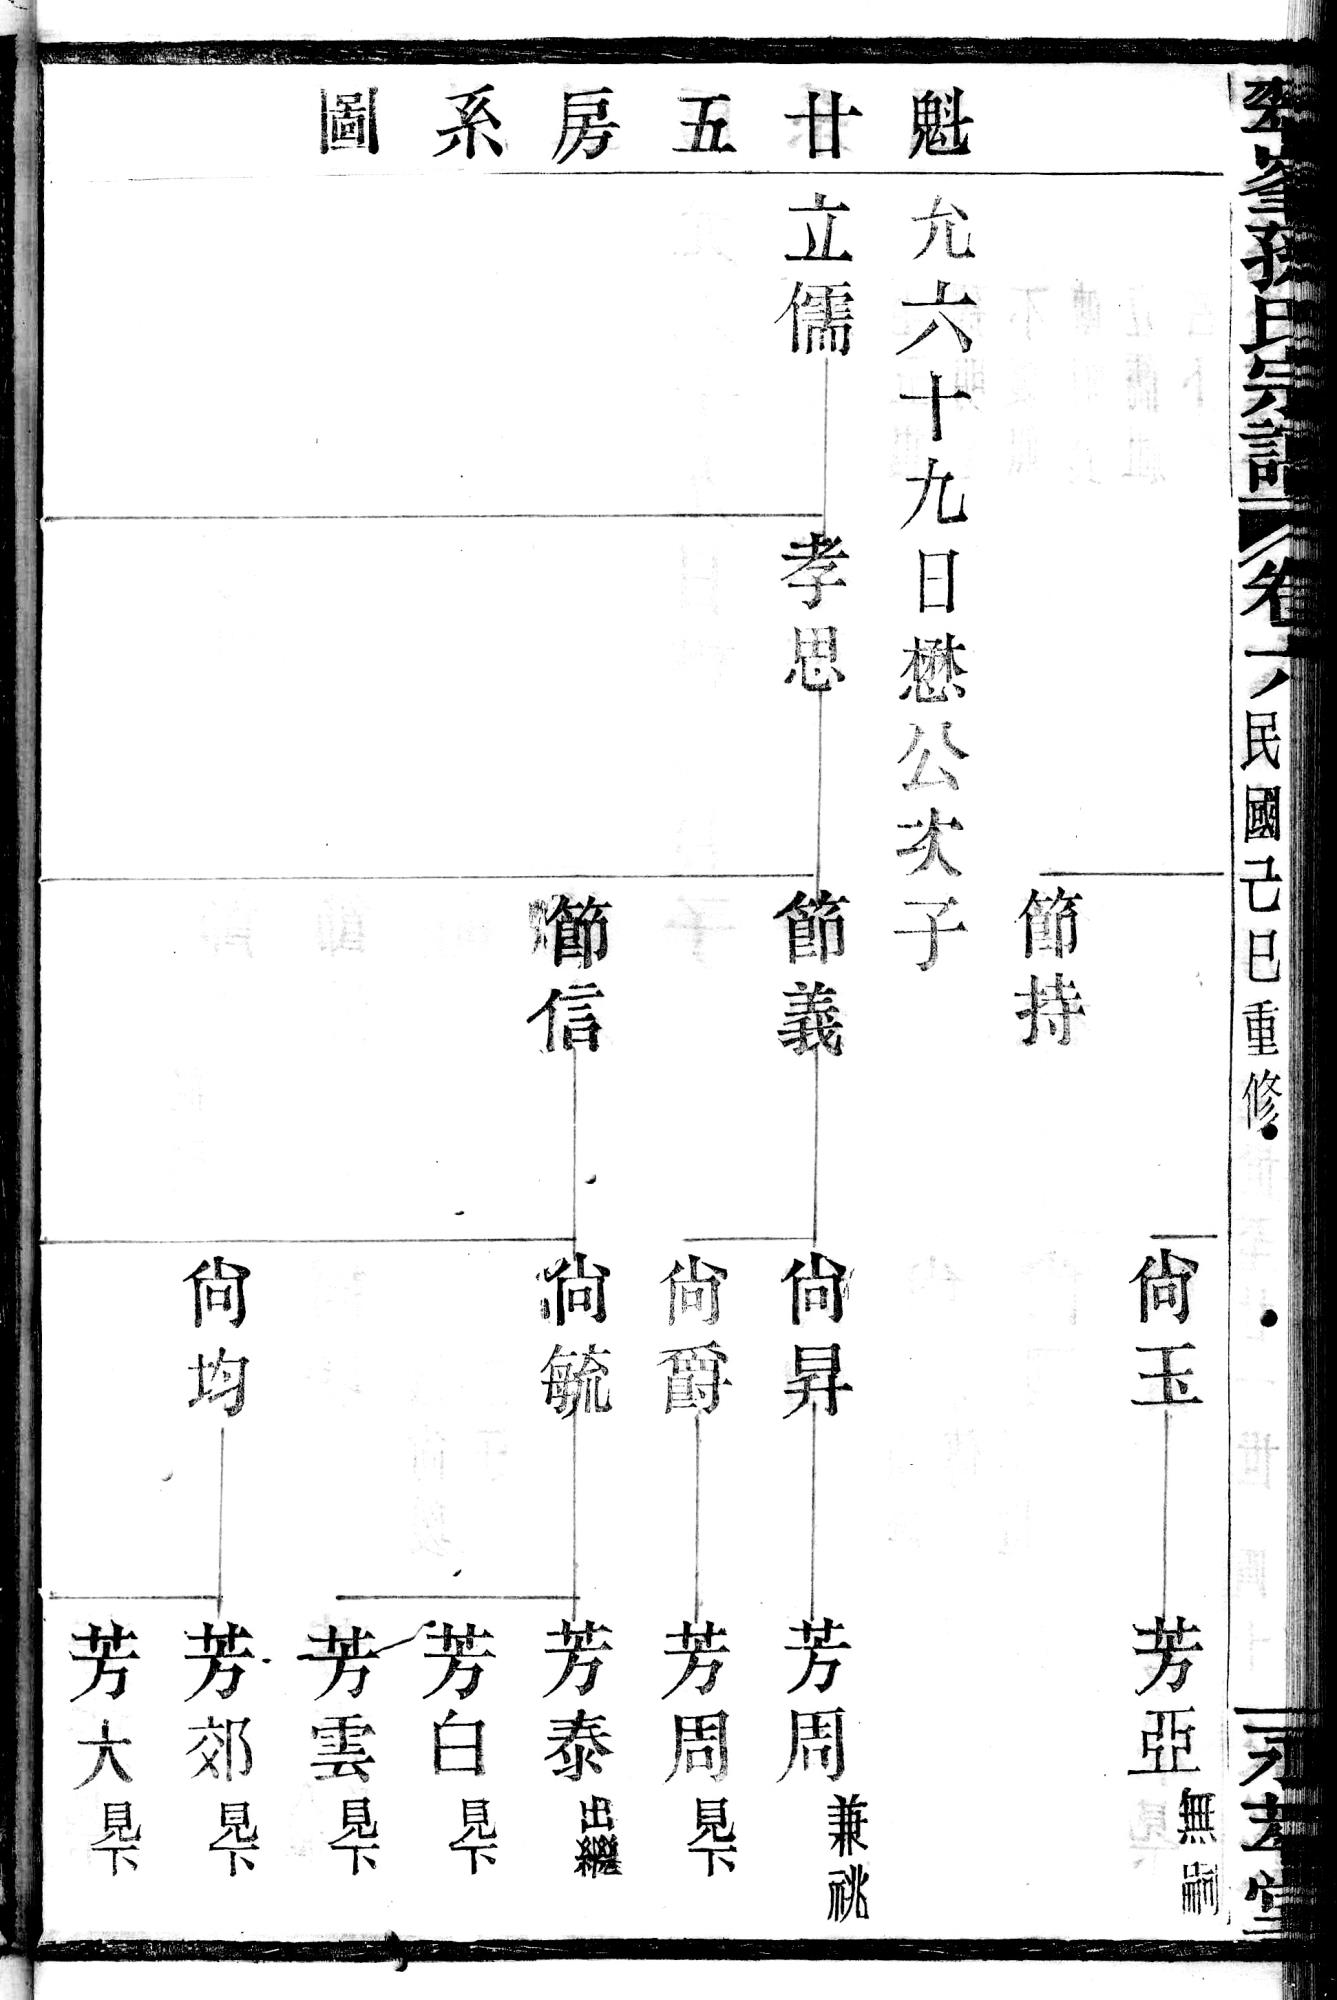 魁廿五房系圖
孫氏宗譜
卷六
民國己巳重修
永孝堂
節持
尙玉
芳亞
無嗣
允六十九日懋公次子
立儒
孝思
節義
尙昇
芳周
兼祧
尙爵
芳周
見下
節信
尙毓
芳泰
出繼
芳白
見下
芳雲
見下
尙均
芳郊
見下
芳大
見下